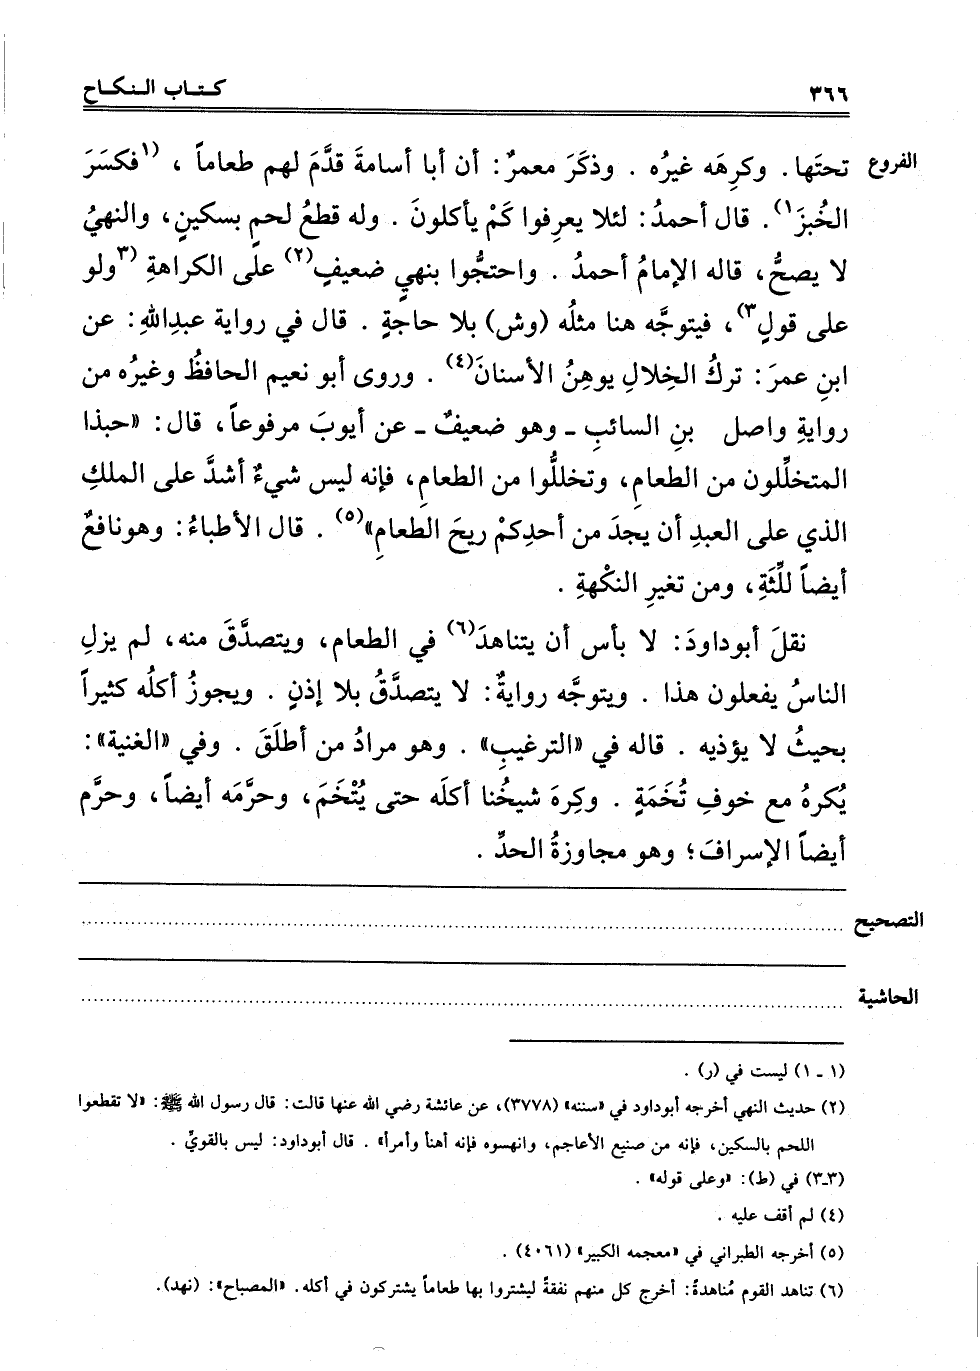 ٣٦٦
كتاب النكاح
الفروع
تحتَها. وكرِهَه غيرُه . وذكَرَ معمرٌ: أن أبا أسامةَ قدَّمَ لهم طعاماً ، (١فكسَرَ
الخُبزَ١). قال أحمدُ: لئلا يعرِفوا كَمْ يأكلونَ . وله قطعُ لحمٍ بسكينٍ، والنهيُ
لا يصحُّ، قاله الإمامُ أحمدُ . واحتجُّوا بنهيٍ ضعيفٍ(٢) على الكراهةِ (٣ولو
على قولٍ٣)، فيتوجَّه هنا مثلُه (وش) بلا حاجةٍ . قال في رواية عبدِاللهِ: عن
ابنِ عمرَ: تركُ الخلالِ يوهِنُ الأسنانَ(٤) . وروى أبو نعيم الحافظُ وغيرُه من
روايةِ واصل بنِ السائبِ ـ وهو ضعيفٌ ـ عن أيوبَ مرفوعاً، قال: «حبذا
المتخلِّلون من الطعامِ، وتخللُّوا من الطعامِ، فإنه ليس شيءٌ أشدَّ على الملكِ
الذي على العبدِ أن يجدَ من أحدِكمْ ريحَ الطعامِ»(٥) . قال الأطباءُ: وهونافعٌ
أيضاً للِّثَةِ، ومن تغيرِ النكْهةِ .
نقلَ أبوداودَ: لا بأس أن يتناهدَ(٦) في الطعام، ويتصدَّقَ منه، لم يزلِ
الناسُ يفعلون هذا . ويتوجَّه روايةٌ: لا يتصدَّقُ بلا إذنٍ . ويجوزُ أكلُه كثيراً
بحيثُ لا يؤذيه . قاله في «الترغيبِ» . وهو مرادُ من أطلَقَ . وفي «الغنية»:
يُكرهُ مع خوفِ تُخَمَةٍ . وكرِهَ شيخُنا أكلَه حتى يُتْخَمَ، وحرَّمَه أيضاً، وحرَّم
أيضاً الإسرافَ؛ وهو مجاوزةُ الحدِّ .
التصحيح
الحاشية
(١ ـ ١) ليست في (ر) .
(٢) حديث النهي أخرجه أبوداود في «سننه» (٣٧٧٨)، عن عائشة رضي الله عنها قالت: قال رسول الله ﷺ: «لا تقطعوا
اللحم بالسكين، فإنه من صنيع الأعاجم، وانهسوه فإنه أهنأ وأمرأ» . قال أبوداود: ليس بالقويِّ .
(٣ـ٣) في (ط): «وعلى قوله» .
(٤) لم أقف عليه .
(٥) أخرجه الطبراني في «معجمه الكبير» (٤٠٦١) .
(٦) تناهد القوم مُناهدةً: أخرج كل منهم نفقةً ليشتروا بها طعاماً يشتركون في أكله. «المصباح»: (نهد).